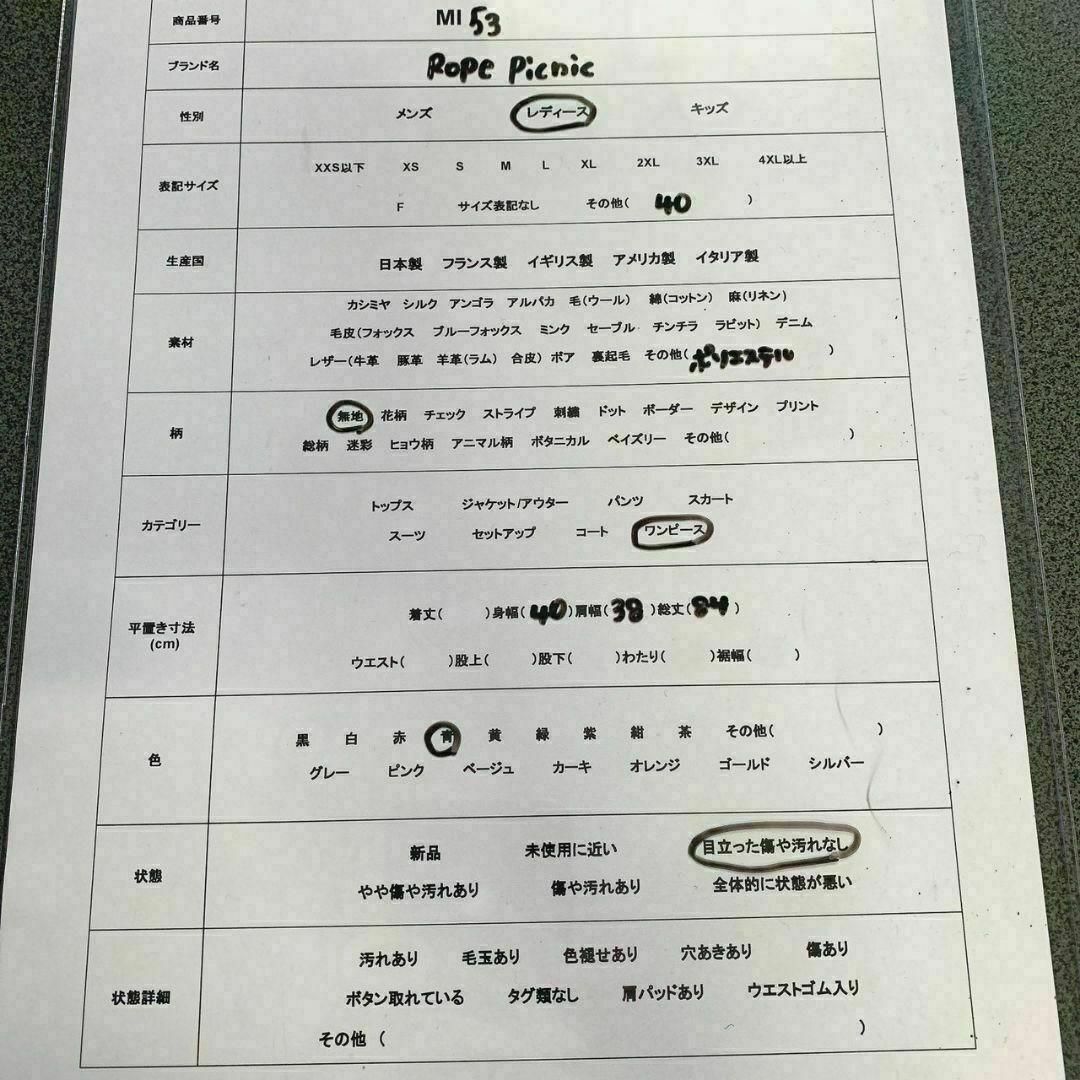 商品番号 MI 53
ブランド名 Rope Picnic
性別 メンズ レディース キッズ
表記サイズ
XXS以下 XS S M L XL 2XL 3XL 4XL以上
F サイズ表記なし その他( 40 )
生産国 日本製 フランス製 イギリス製 アメリカ製 イタリア製
素材
カシミヤ シルク アンゴラ アルパカ 毛(ウール) 綿(コットン) 麻(リネン)
毛皮(フォックス ブルーフォックス ミンク セーブル チンチラ ラビット) デニム
レザー(牛革 豚革 羊革(ラム) 合皮) ボア 裏起毛 その他( ポリエステル )
柄
無地 花柄 チェック ストライプ 刺繍 ドット ボーダー デザイン プリント
総柄 迷彩 ヒョウ柄 アニマル柄 ボタニカル ペイズリー その他( )
カテゴリー
トップス ジャケット/アウター パンツ スカート
スーツ セットアップ コート ワンピース
平置き寸法
(cm)
着丈( )身幅( 40 )肩幅( 38 )総丈( 84 )
ウエスト( )股上( )股下( )わたり( )裾幅( )
色
黒 白 赤 青 黄 緑 紫 紺 茶 その他( )
グレー ピンク ベージュ カーキ オレンジ ゴールド シルバー
状態
新品 未使用に近い 目立った傷や汚れなし
やや傷や汚れあり 傷や汚れあり 全体的に状態が悪い
状態詳細
汚れあり 毛玉あり 色褪せあり 穴あきあり 傷あり
ボタン取れている タグ類なし 肩パッドあり ウエストゴム入り
その他 ( )